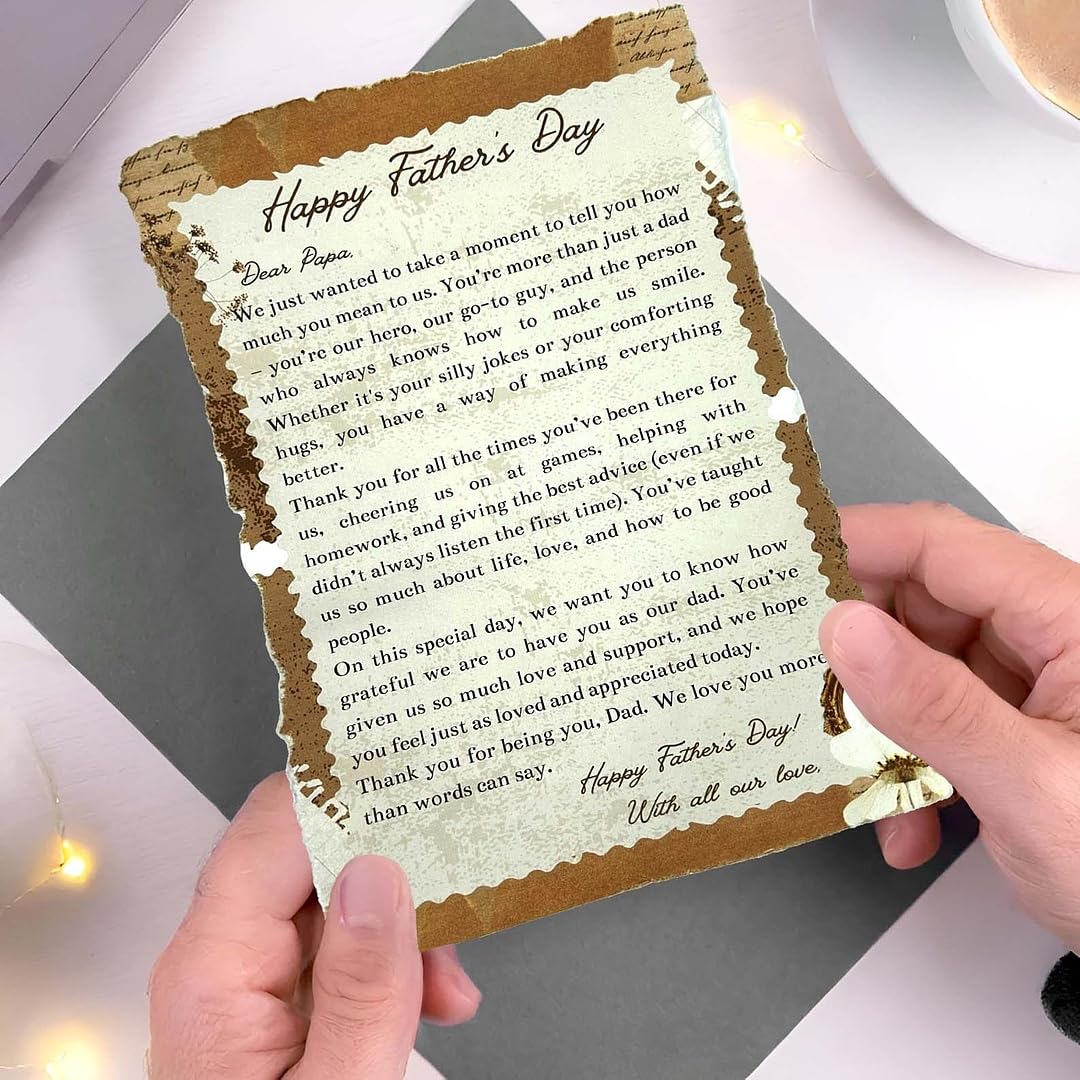 Happy Father's Day
Dear Papa,
We just wanted to take a moment to tell you how
much you mean to us. You're more than just a dad
– you're our hero, our go-to guy, and the person
who always knows how to make us smile.
Whether it's your silly jokes or your comforting
hugs, you have a way of making everything
better.
Thank you for all the times you've been there for
us, cheering us on at games, helping with
homework, and giving the best advice (even if we
didn't always listen the first time). You've taught
us so much about life, love, and how to be good
people.
On this special day, we want you to know how
grateful we are to have you as our dad. You've
given us so much love and support, and we hope
you feel just as loved and appreciated today.
Thank you for being you, Dad. We love you more
than words can say.
Happy Father's Day!
With all our love,